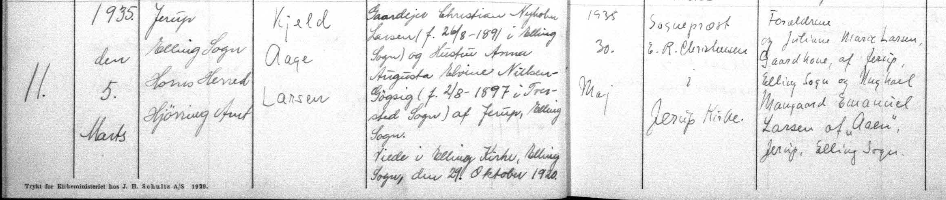 11.
1935.
den
5.
Marts
Jerup
Elling Sogn
Horns Herred
Hjørring Amt
Kjeld
Aage
Larsen
Gaardejer Christian Nyholm
Larsen (f. 26/8-1891 i Elling
Sogn) og Hustru Anna
Augusta Elvine Nielsen-
Gøgsig (f. 2/8-1897 i Tver-
sted Sogn) af Jerup, Elling
Sogn.
Viede i Elling Kirke, Elling
Sogn, den 29. Oktober 1920.
1935
30.
Maj
Sognepræst
E. R. Christensen
i
Jerup Kirke.
Forældrene
og Juliane Marie Larsen,
Gaardkone, af Jerup,
Elling Sogn og Ungkarl
Emanuel
Larsen af "Aaen",
Jerup, Elling Sogn.
Trykt for Kirkeministeriet hos J. H. Schultz A/S 1929.